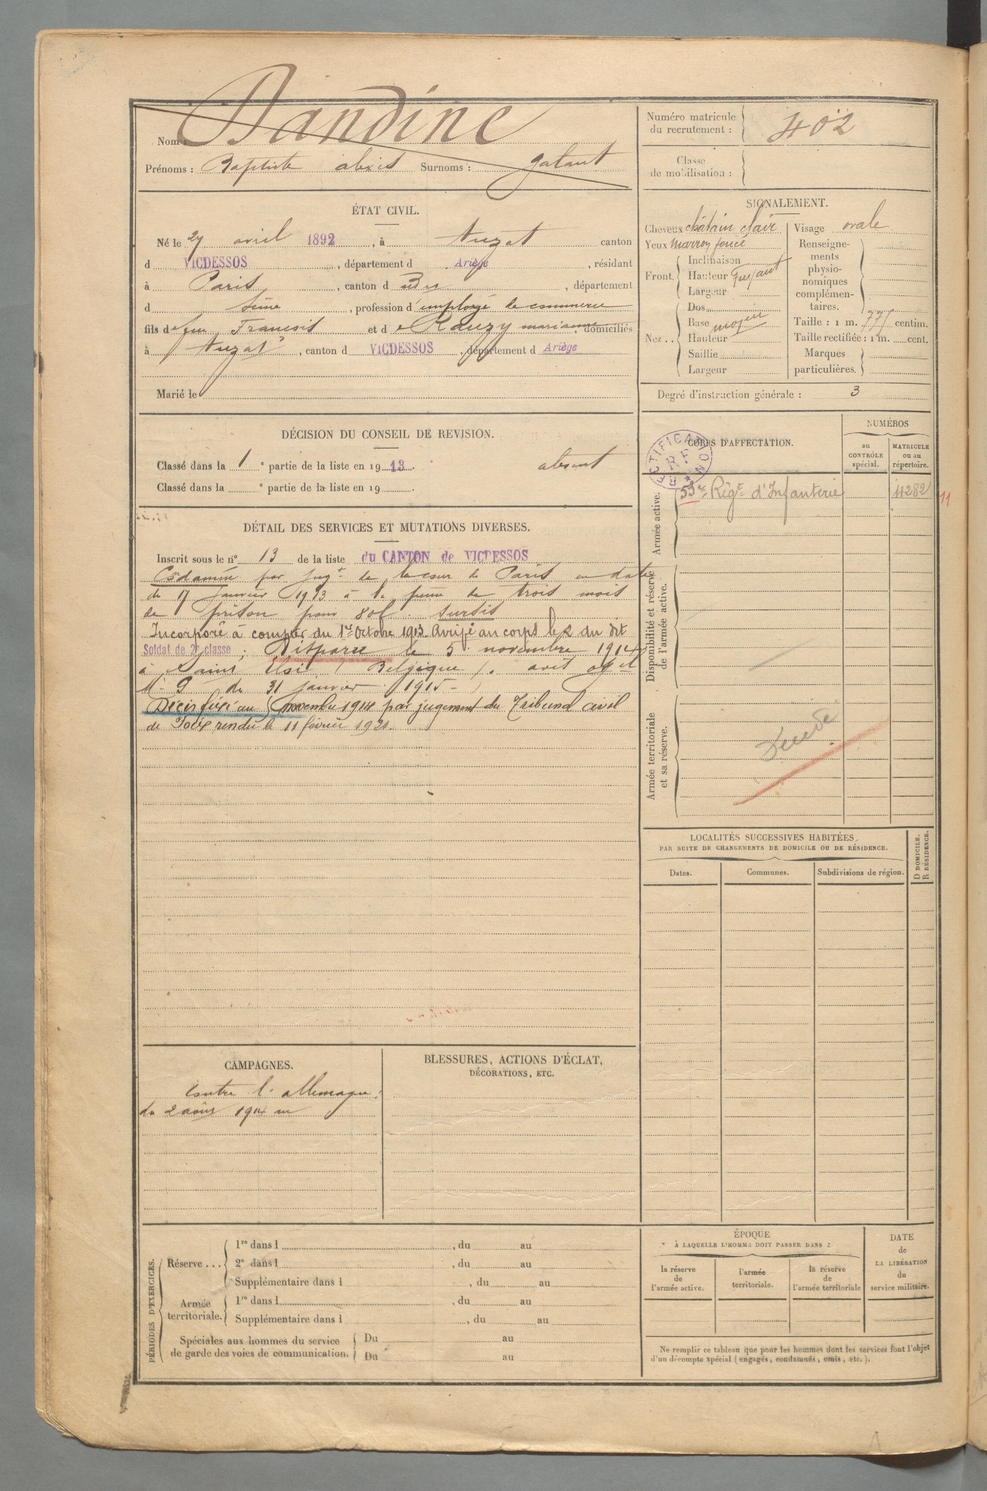 Nom : Dandine
Prénoms : Baptiste alexis Surnoms : galant
Numéro matricule du recrutement : 402
Classe de mobilisation :
ÉTAT CIVIL.
Né le 27 avril 1892, à Auzat canton
d VICDESSOS, département d Ariège, résidant
à Paris, canton d , département
d Seine, profession d'employé de commerce
fils de feu Francois et de Rauzy marianne, domiciliés
à Auzat, canton d VICDESSOS, département d Ariège
Marié le
SIGNALEMENT.
Cheveux chatain clair
Yeux marron foncé
Front. Inclinaison
Hauteur fuyant
Largeur
Nez... Dos
Base moyen
Hauteur
Saillie
Largeur
Visage ovale
Renseignements physionomiques complémentaires.
Taille : 1 m. 77 centim.
Taille rectifiée : 1 m. cent.
Marques particulières.
Degré d'instruction générale : 3
DÉCISION DU CONSEIL DE REVISION.
Classé dans la 1e partie de la liste en 1913. absent
Classé dans la e partie de la liste en 19 .
DÉTAIL DES SERVICES ET MUTATIONS DIVERSES.
Inscrit sous le n° 13 de la liste du CANTON de VICDESSOS
Condamné par jugt de la cour de Paris en date
du 17 janvier 1913 à la peine de trois mois
de prison pour sursis
Incorporé à compter du 1er Octobre 1913. Arrivé au corps le 2 du dit
Soldat de 2e classe ; Disparu le 5 novembre 1914
à (Belgique). avis
M. 9 du 31 janvier 1915-
Décès fixé au 5 novembre 1914 par jugement du Tribunal civil
de Foix rendu le 11 février 1921.
CORPS D'AFFECTATION.
NUMÉROS
au CONTRÔLE spécial.
MATRICULE ou au répertoire.
RECTIFICATION R F
Armée active.
55e Régt d'Infanterie 4282
11
Disponibilité et réserve de l'armée active.
Armée territoriale et sa réserve.
LOCALITÉS SUCCESSIVES HABITÉES,
PAR SUITE DE CHANGEMENTS DE DOMICILE OU DE RÉSIDENCE.
Dates. Communes. Subdivisions de région. D DOMICILE. R RÉSIDENCE.
CAMPAGNES.
Contre l'allemagne :
du 2 août 1914 au
BLESSURES, ACTIONS D'ÉCLAT,
DÉCORATIONS, ETC.
PÉRIODES D'EXERCICES.
Réserve... 1re dans l , du au
2e dans l , du au
Supplémentaire dans l , du au
Armée territoriale. 1re dans l , du au
Supplémentaire dans l , du au
Spéciales aux hommes du service de garde des voies de communication. Du au
Du au
ÉPOQUE
À LAQUELLE L'HOMME DOIT PASSER DANS :
la réserve de l'armée active.
l'armée territoriale.
la réserve de l'armée territoriale
DATE de LA LIBÉRATION du service militaire.
Ne remplir ce tableau que pour les hommes dont les services font l'objet
d'un décompte spécial (engagés, condamnés, omis, etc.).